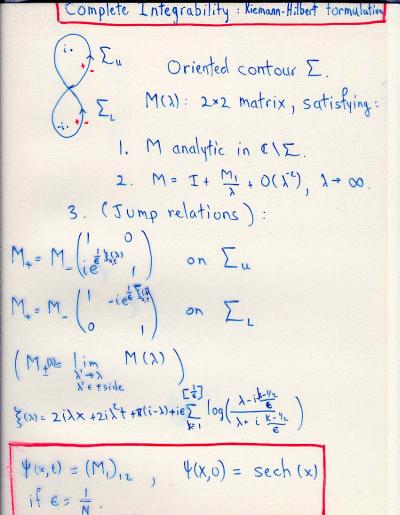 Complete Integrability : Riemann-Hilbert formulation
i.
+ -
Σ_U
-i.
+ -
Σ_L
Oriented contour Σ.
M(λ): 2×2 matrix, satisfying:
1. M analytic in ℂ\Σ.
2. M = I + M₁/λ + O(λ⁻²), λ → ∞.
3. (Jump relations):
M₊ = M₋ (1 0; i e^{(1/ε) ξ(λ)} 1) on Σ_U
M₊ = M₋ (1 -i e^{(1/ε) ξ̄(λ̄)}; 0 1) on Σ_L
(M_±(λ) = lim_{λ'→λ, λ' ∈ ± side} M(λ))
ξ(λ) = 2iλx + 2iλ²t + π(i-λ) + iε Σ_{k=1}^{[1/ε]} log((λ - i (k-1/2)/ε)/(λ + i (k-1/2)/ε))
ψ(x,t) = (M₁)₁₂ , ψ(x,0) = sech(x)
if ε = 1/N.